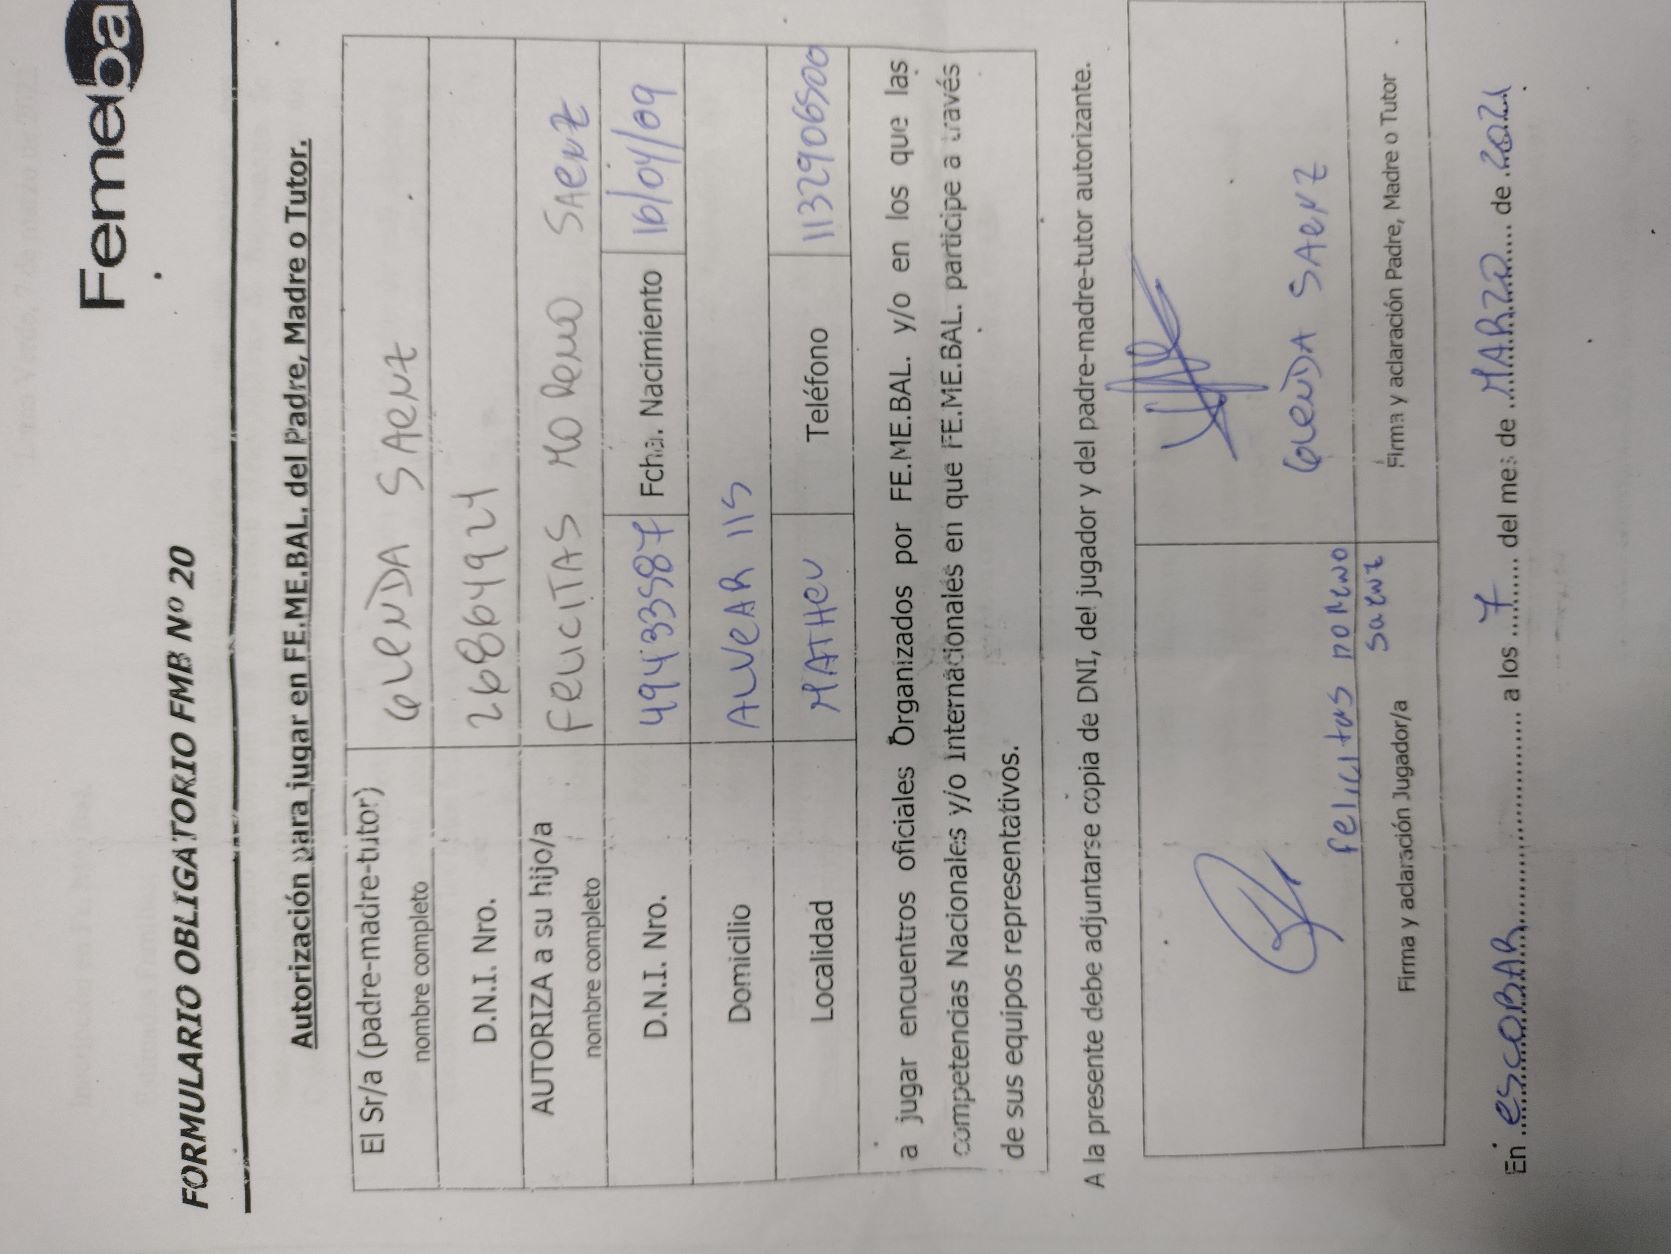 Femebal
FORMULARIO OBLIGATORIO FMB Nº 20
Autorización para jugar en FE.ME.BAL. del Padre, Madre o Tutor.
El Sr/a (padre-madre-tutor) GLENDA SAENZ
nombre completo
D.N.I. Nro. 26864924
AUTORIZA a su hijo/a FELICITAS MORENO SAENZ
nombre completo
D.N.I. Nro. 49433587 Fcha. Nacimiento 16/04/09
Domicilio ALVEAR 115
Localidad MATHEU Teléfono 1132906500
a jugar encuentros oficiales Organizados por FE.ME.BAL. y/o en los que las
competencias Nacionales y/o Internacionales en que FE.ME.BAL. participe a través
de sus equipos representativos.
A la presente debe adjuntarse copia de DNI, del jugador y del padre-madre-tutor autorizante.
Felicitas Moreno
Saenz
GLENDA SAENZ
Firma y aclaración Jugador/a Firma y aclaración Padre, Madre o Tutor
En ESCOBAR a los 7 del mes de MARZO de 2021